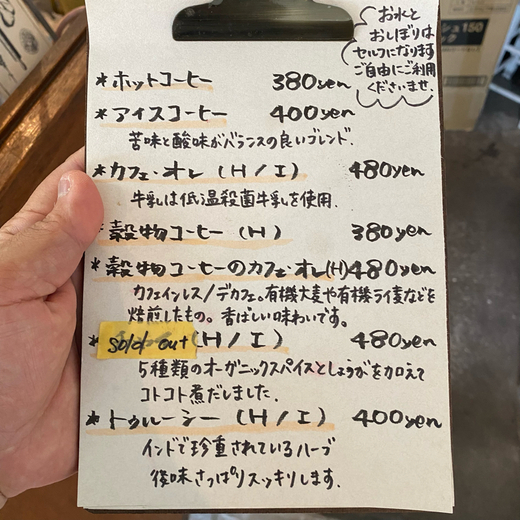 お水と
おしぼりは
セルフになります
ご自由にご利用
くださいませ.
*ホットコーヒー 380yen
*アイスコーヒー 400yen
苦味と酸味がバランスの良いブレンド.
*カフェ・オレ (H/I) 480yen
牛乳は低温殺菌牛乳を使用.
*穀物コーヒー (H) 380yen
*穀物コーヒーのカフェ・オレ(H) 480yen
カフェインレス/デカフェ。有機大麦や有機ライ麦などを
焙煎したもの。香ばしい味わいです。
* sold out (H/I) 480yen
5種類のオーガニックスパイスとしょうがを加えて
コトコト煮だしました.
*トゥルーシー (H/I) 400yen
インドで珍重されているハーブ
後味さっぱりスッキリします.